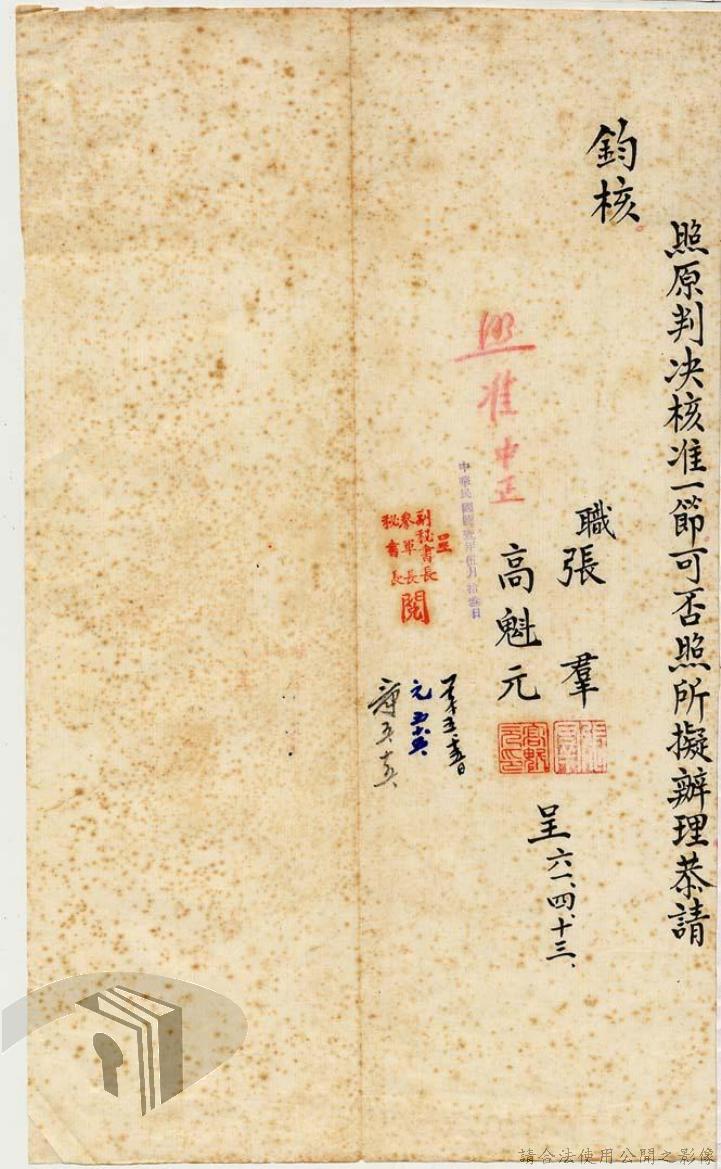 照原判決核准一節可否照所擬辦理恭請
鈞核
職張羣
高魁元
呈六一、四、十三、
照准中正
呈
副秘書長
參軍長
秘書長
閱
元
請合法使用公開之影像